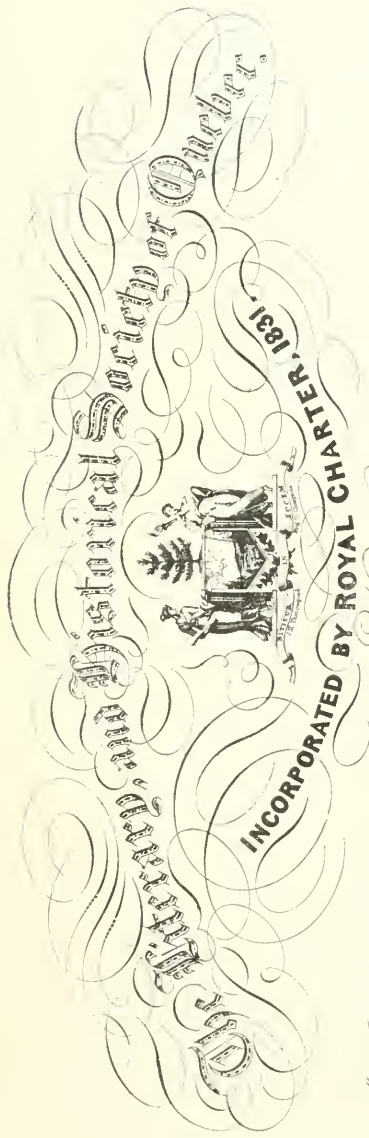 The Literary and Historical Society of Quebec.
NITITUR IN
INCORPORATED BY ROYAL CHARTER, 1831.